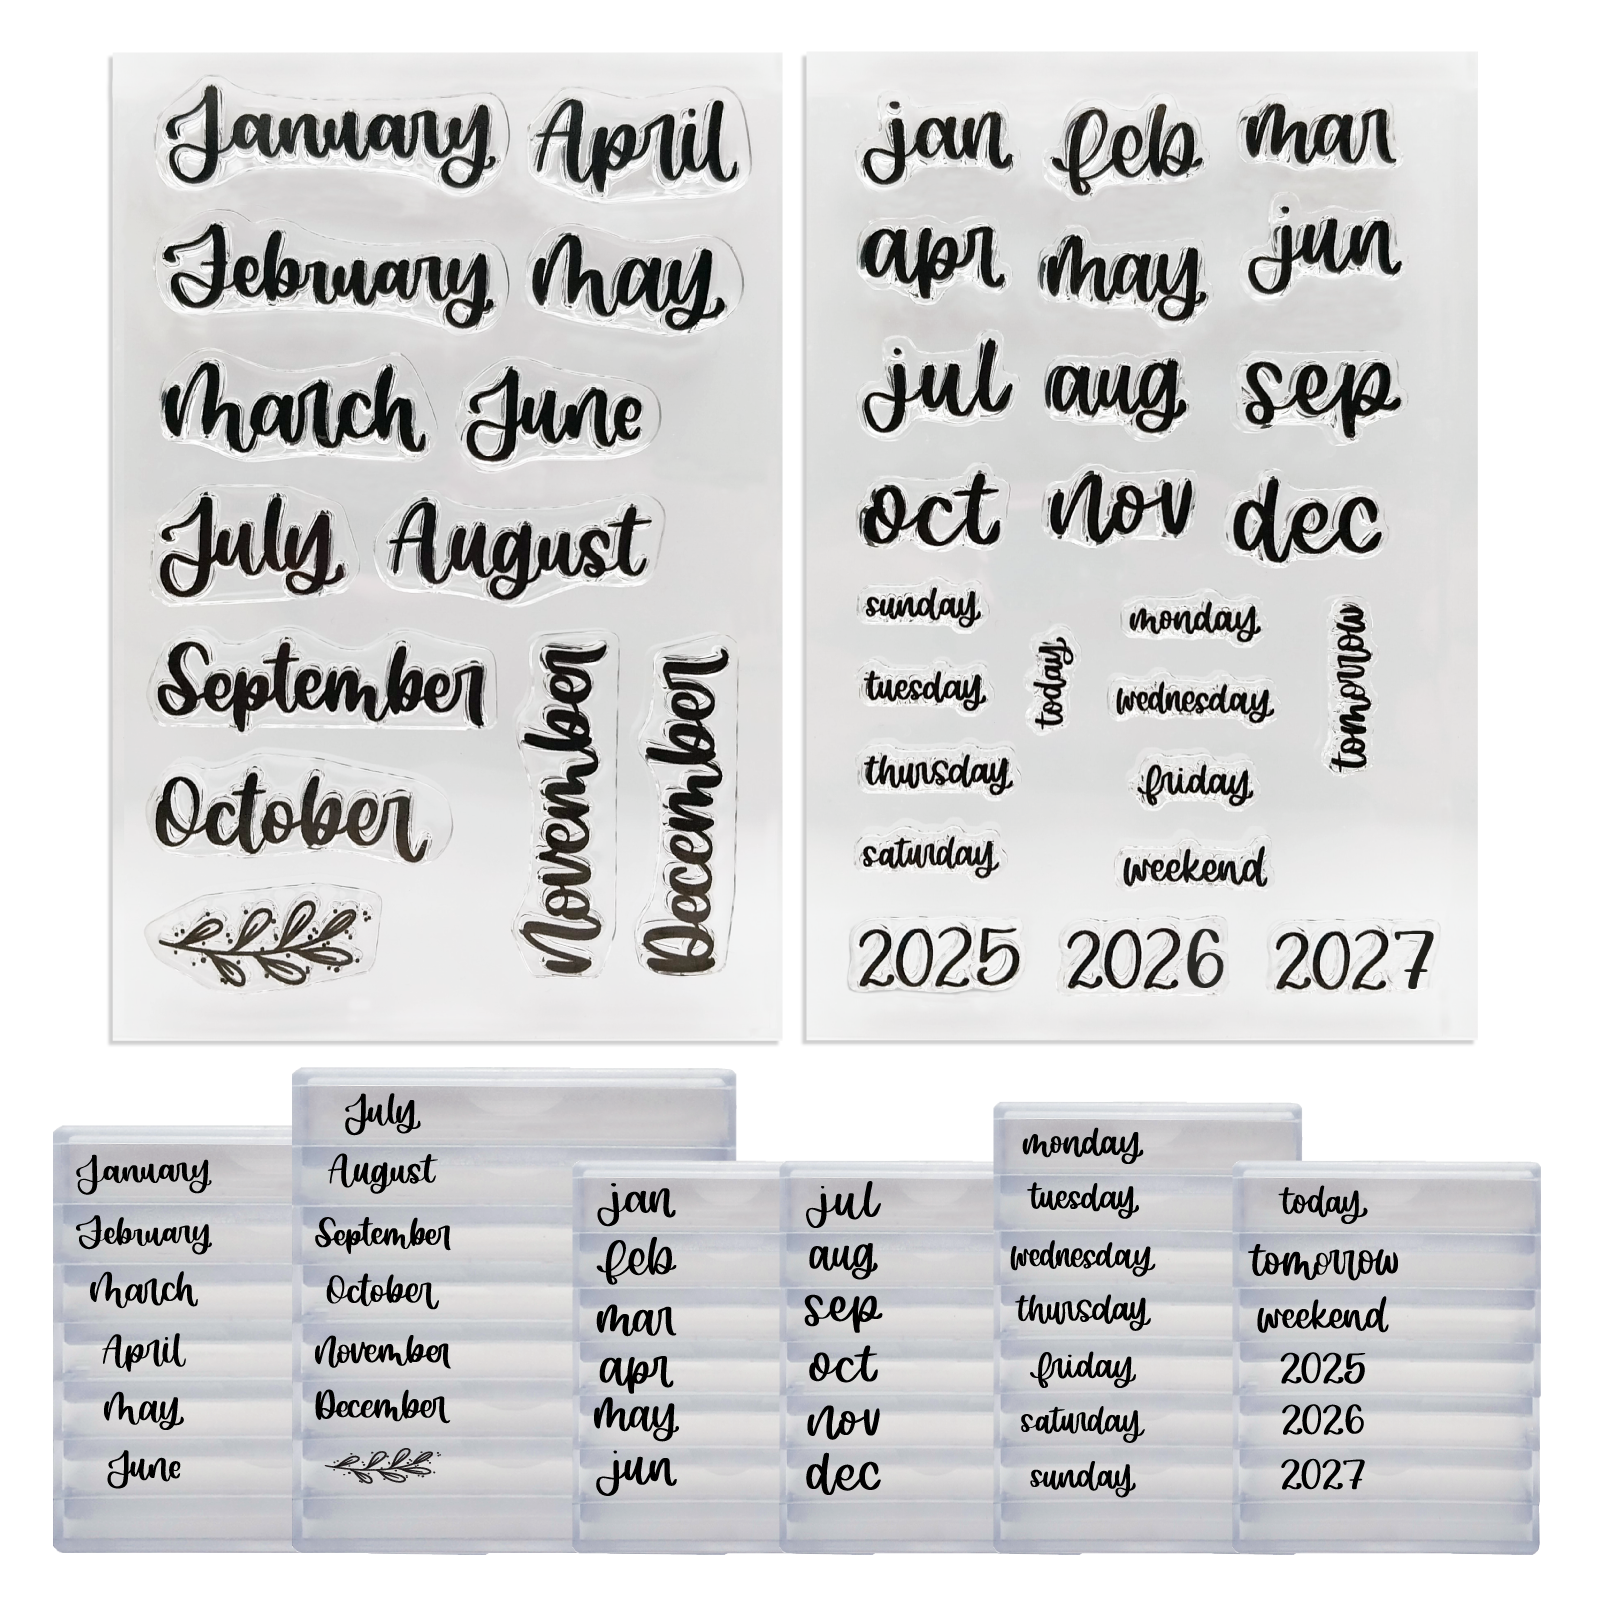 January April
February May
March June
July August
September
October
November
December
jan feb mar
apr may jun
jul aug sep
oct nov dec
sunday monday
tuesday wednesday
thursday friday
saturday weekend
today
tomorrow
2025 2026 2027
January
February
March
April
May
June
July
August
September
October
November
December
jan
feb
mar
apr
may
jun
jul
aug
sep
oct
nov
dec
monday
tuesday
wednesday
thursday
friday
saturday
sunday
today
tomorrow
weekend
2025
2026
2027